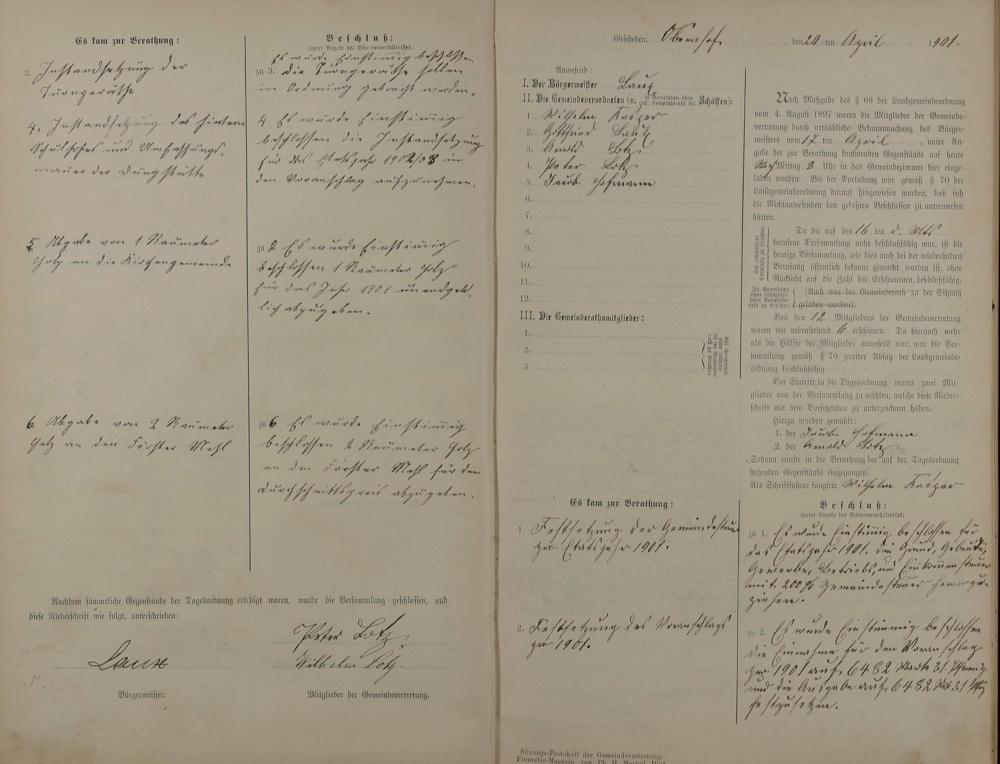 Es kam zur Berathung:
3. Instandsetzung der
Turngeräthe
4. Instandsetzung des hintern
Schulhofes und Umfassungs-
mauer der Dungstätte
5. Abgabe von 1 Raumeter
Holz an die Kirchengemeinde
6. Abgabe von 2 Raumeter
Holz an den Förster Mehl
Beschluß:
(unter Angabe des Stimmenverhältnisses.)
Es wurde Einstimmig beschlossen
zu 3. die Turngeräthe sollen
in Ordnung gebracht werden.
4 Es wurde Einstimmig
beschlossen die Instandsetzung
für das Etatsjahr 1902/03 in
den Voranschlag aufzunehmen.
zu 5. Es wurde Einstimmig
beschlossen 1 Raumeter Holz
für das Jahr 1901 unendgelt-
lich abzugeben.
zu 6. Es wurde Einstimmig
beschlossen 2 Raumeter Holz
an den Förster Mehl für den
Durchschnittspreis abzugeben.
Nachdem sämmtliche Gegenstände der Tagesordnung erledigt waren, wurde die Versammlung geschlossen, und
diese Niederschrift wie folgt, unterschrieben:
Peter Lotz
Laux
Wilhelm Lotz
Bürgermeister.
Mitglieder der Gemeindevertretung.
Geschehen, Obernhof den 20 ten April 1901.
Anwesend:
I. Der Bürgermeister Laux
II. Die Gemeindeverordneten (u. in Gemeinden ohne
coll. Gemeinderath die Schöffen):
1. Wilhelm Kasper
2. Gottfried Laux
3. Arnold Lotz
4. Peter Lotz
5. Jacob Hofmann
6.
7.
8.
9.
10.
11.
12.
III. Die Gemeinderathsmitglieder:
1.
2.
3.
Nach Maßgabe des § 68 der Landgemeindeordnung
vom 4. August 1897 waren die Mitglieder der Gemeinde-
vertretung durch ortsübliche Bekanntmachung des Bürger-
meisters vom 17 ten April, unter An-
gabe der zur Berathung kommenden Gegenstände auf heute
Nach Mittag 2 Uhr in das Gemeindezimmer hier einge-
laden worden. Bei der Vorladung war gemäß § 70 der
Landgemeindeordnung darauf hingewiesen worden, daß sich
die Nichtanwesenden den gefaßten Beschlüssen zu unterwerfen
hätten.
Da die auf den 16 ten d. Mts
berufene Versammlung nicht beschlußfähig war, ist die
heutige Versammlung, wie dies auch bei der wiederholten
Berufung öffentlich bekannt gemacht worden ist, ohne
Rücksicht auf die Zahl der Erschienenen, beschlußfähig.
(Auch war der Gemeinderath zu der Sitzung
geladen worden).
Von den 12 Mitgliedern der Gemeindevertretung
waren wie nebenstehend 6 erschienen. Da hiernach mehr
als die Hälfte der Mitglieder anwesend war, war die Ver-
sammlung gemäß § 70 zweiter Absatz der Landgemeinde-
ordnung beschlußfähig.
Vor Eintritt in die Tagesordnung waren zwei Mit-
glieder von der Versammlung zu wählen, welche diese Nieder-
schrift mit dem Vorsitzenden zu unterzeichnen haben.
Hierzu wurden gewählt:
1. der Jacob Hofmann
2. der Arnold Lotz
Sodann wurde in die Berathung der auf der Tagesordnung
stehenden Gegenstände eingegangen.
Als Schriftführer fungirte Wilhelm Kasper
Es kam zur Berathung:
1. Festsetzung der Gemeindesteuer
pro Etatsjahr 1901.
2. Festsetzung des Voranschlags
pro 1901.
Beschluß:
(unter Angabe des Stimmenverhältnisses)
zu 1. Es wurde Einstimmig beschlossen für
das Etatsjahr 1901. die Grund, Gebäude,
Gewerbe, Betriebs, und Einkommensteuer
mit 200 % Gemeindesteuer heranzu-
ziehen.
zu 2. Es wurde Einstimmig beschlossen
die Einnahme für den Voranschlag
pro 1901 auf 6482 Mark 31 Pfennig
und die Ausgabe auf 6482 Mk 31 Pfg
festzusetzen.
Sitzungs-Protokoll der Gemeindevertretung.